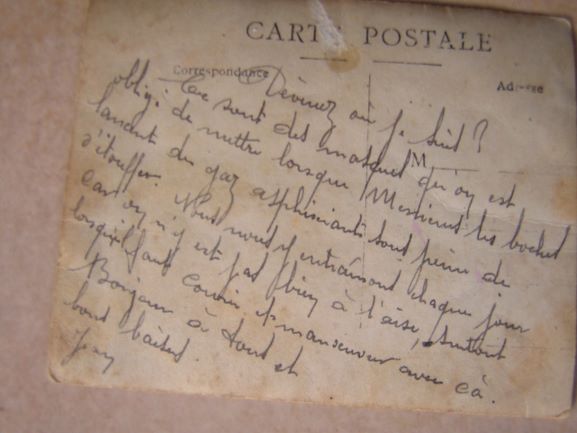 CARTE POSTALE
Correspondance
Adresse
M
Devinez où je suis ?
Ce sont des masques qu'on est
obligé de mettre lorsque Messieurs les boches
lancent du gaz asphixiants sous peine de
s'étouffer. Nous nous y entrainons chaque jour
car on n'y est pas bien à l'aise, surtout
lorsqu'il faut courir et manoeuvrer avec çà.
Bonjour à tous et
bons baisers.
Jean